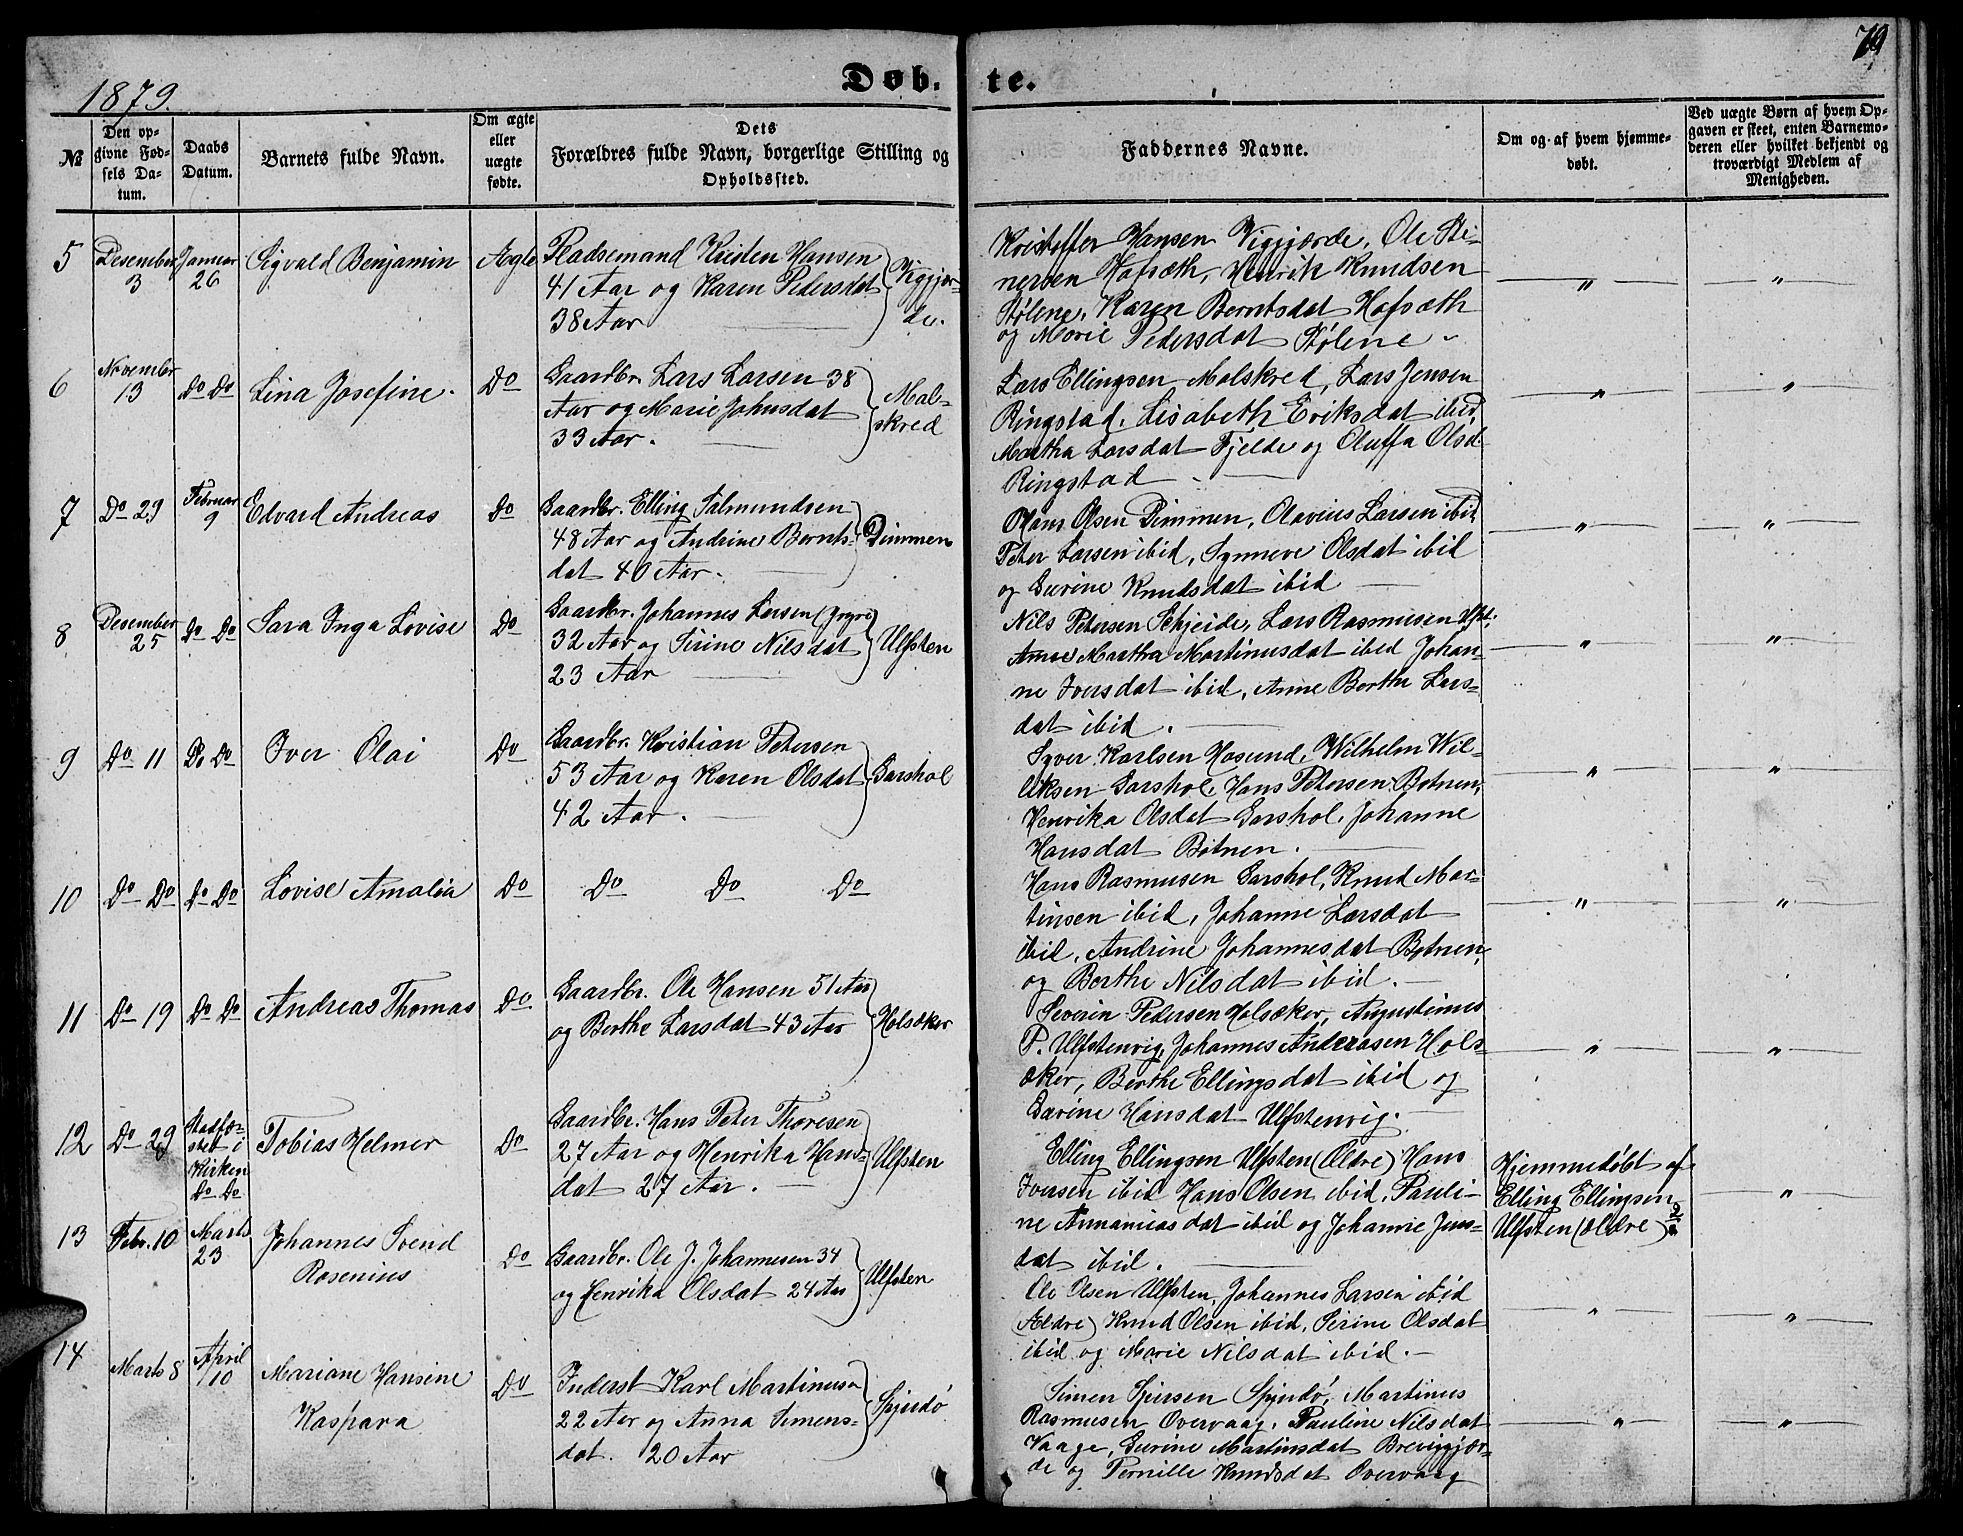 1879.
Døb-
te.
79
№
Den op-
givne Fød-
sels Da-
tum.
Daabs
Datum.
Barnets fulde Navn.
Om ægte
eller
uægte
fødte.
Dets
Forældres fulde Navn, borgerlige Stilling og
Opholdssted.
Faddernes Navne.
Om og af hvem hjemme-
døbt.
Ved uægte Børn af hvem Op-
gaven er skeet, enten Barnemo-
deren eller hvilket bekjendt og
troværdigt Medlem af
Menigheden.
5
Desember
3
Januar
26
Sigvald Benjamin
Ægte
Pladsemand Kristen Hansen
41 Aar og Karen Pedersdat
38 Aar
Viggjær-
de.
Kristoffer Hansen Viggjærde, Ole Sti-
nersen Hofsæth, Henrik Knudsen
Stølene, Karen Berntsdat Hofsæth
og Marie Pedersdat Stølene
"
"
6
November
13
Do Do
Lina Josefine
Do
Gaardbr. Lars Larsen 38
Aar og Marie Johnsdat
33 Aar.
Mal-
skred
Lars Ellingsen Malskred, Lars Jensen
Ringstad, Lisabeth Eriksdat ibid,
Martha Larsdat Fjelde og Oluffa Olsd.
Ringstad
"
"
7
Do 29
Februar
9
Edvard Andreas
Do
Gaardbr. Elling Salmundsen
48 Aar og Andrine Bernts-
dat 40 Aar.
Dimmen
Hans Olsen Dimmen, Olavius Larsen ibid
Peter Larsen ibid, Synneve Olsdat ibid
og Gurine Knudsdat ibid
"
"
8
Desember
25
Do Do
Sara Inga Lovise
Do
Gaardbr. Johannes Larsen (Yngre)
32 Aar og Sirine Nilsdat
23 Aar
Ulfsten
Nils Petersen Schjeide, Lars Rasmusen Ulfst.
Anne Martha Martinusdat ibid Johan-
ne Iversdat ibid, Anne Berthe Lars-
dat ibid.
"
"
9
Do 11
Do Do
Iver Olai
Do
Gaardbr. Kristian Petersen
53 Aar og Karen Olsdat
42 Aar.
Garshol
Syver Karlsen Hasund, Wilhelm Wil-
liksen Garshol, Hans Petersen Botnen,
Henrika Olsdat Garshol, Johanne
Hansdat Botnen.
"
"
10
Do Do
Do Do
Lovise Amalia
Do
Do Do Do
Hans Rasmusen Garshol, Knud Mar-
tinsen ibid, Johanne Larsdat
ibid, Andrine Johannesdat Botnen,
og Berthe Nilsdat ibid.
"
"
11
Do 19
Do Do
Andreas Thomas
Do
Gaardbr. Ole Hansen 51 Aar
og Berthe Larsdat 43 Aar
Holsøker
Severin Pedersen Holsæker, Augustinus
P. Ulfstenvig, Johannes Anderasen Hols-
æker, Berthe Ellingsdat ibid og
Gurine Hansdat Ulfstenvig.
"
"
12
Do 29
Stadfæ-
stet i
Kirken
Do Do
Tobias Helmer
Do
Gaardbr. Hans Peter Thoresen
27 Aar og Henrika Hans-
dat 27 Aar.
Ulfsten
Elling Ellingsen Ulfsten (Ældre) Hans
Iversen ibid Hans Olsen ibid, Pauli-
ne Annaniasdat ibid og Johanne Jens-
dat ibid.
Hjemmedøbt af
Elling Ellingsen
Ulfsten (Ældre)
"
13
Febr. 10
Marts
23
Johannes Svend
Rosenius
Do
Gaardbr. Ole J. Johannesen 34
og Henrika Olsdat 24 Aar
Ulfsten
Ole Olsen Ulfsten, Johannes Larsen ibid
(Ældre) Knud Olsen ibid, Sirine Olsdat
ibid og Marie Nilsdat ibid.
"
"
14
Marts 8
April
10
Mariane Hansine
Kaspara
Do
Inderst Karl Martinusen
22 Aar og Anna Simens-
dat. 20 Aar
Spjudø
Simen Sjursen Spjudø, Martinus
Rasmusen Overvaag, Pauline Nilsdat
Vaage, Gurine Martinsdat Breviggjær-
de og Pernille Knudsdat Overvaag
"
"